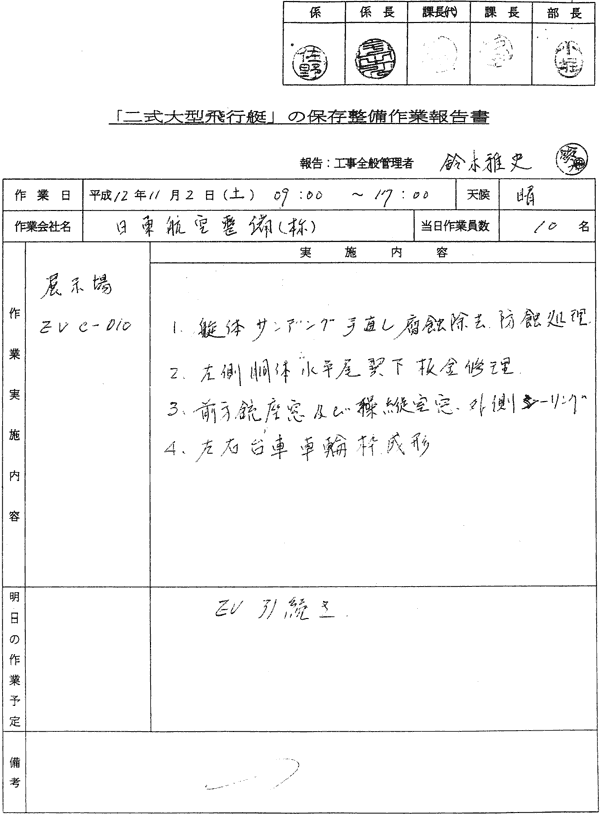 係 係長 課長(代) 課長 部長
佐野 小堀
「二式大型飛行艇」の保存整備作業報告書
報告：工事全般管理者 鈴木雅史
作業日 平成12年11月2日(土) 09:00 ～17:00 天候 晴
作業会社名 日東航空整備(株) 当日作業員数 10名
作業実施内容 実施内容
展示場
ZV C-010
1. 艇体サンディング手直し腐蝕除去.防蝕処理.
2. 左側胴体水平尾翼下板金修理.
3. 前方銃座窓及び操縦室窓.外側シーリング
4. 左右台車車輪枠成形
明日の作業予定
ZV 引続き.
備考